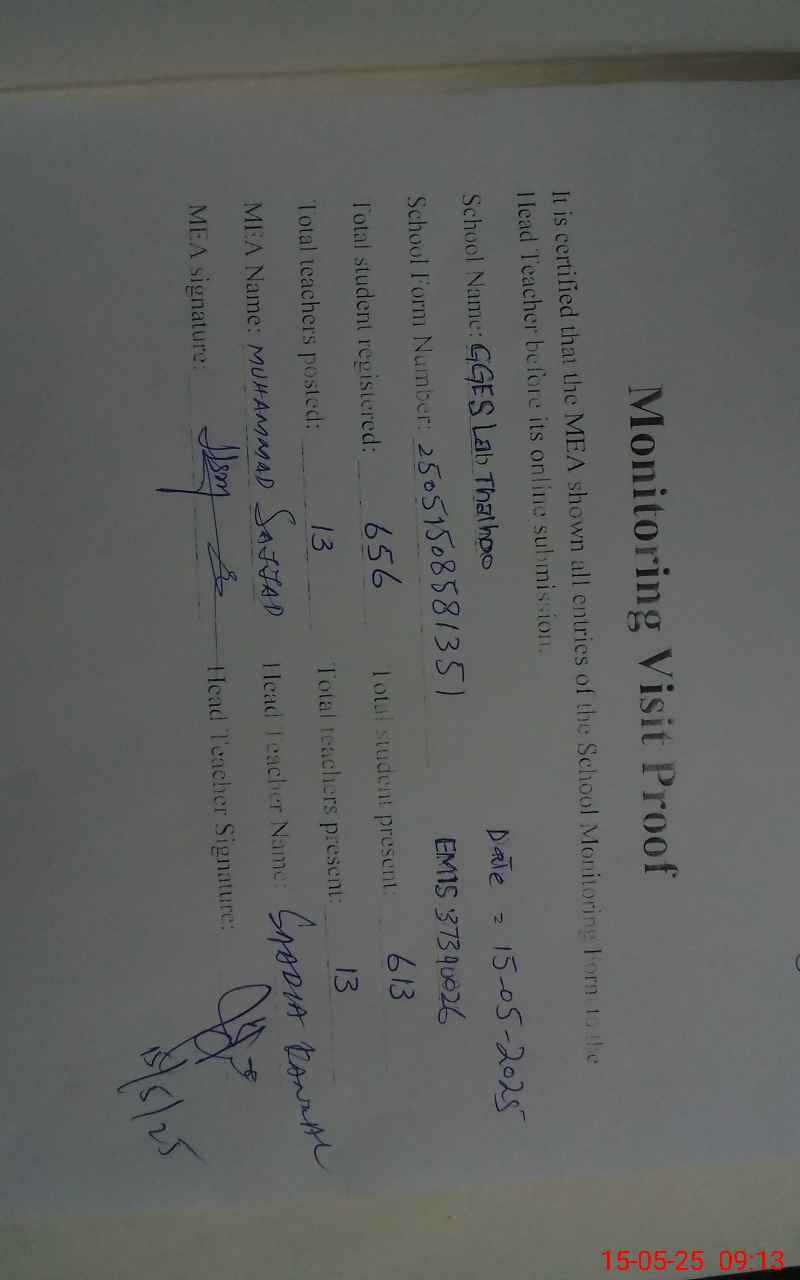 Monitoring Visit Proof
It is certified that the MEA shown all entries of the School Monitoring Form to the
Head Teacher before its online submission.
Date = 15-05-2025
School Name: GGES Lab Thathoo
EMIS 37340026
School Form Number: 25051508581351
Total student registered: 656 Total student present: 613
Total teachers posted: 13 Total teachers present: 13
MEA Name: MUHAMMAD SAJJAD Head Teacher Name: SAADIA KANWAL
MEA signature: Head Teacher Signature:
15/5/25
15-05-25 09:13